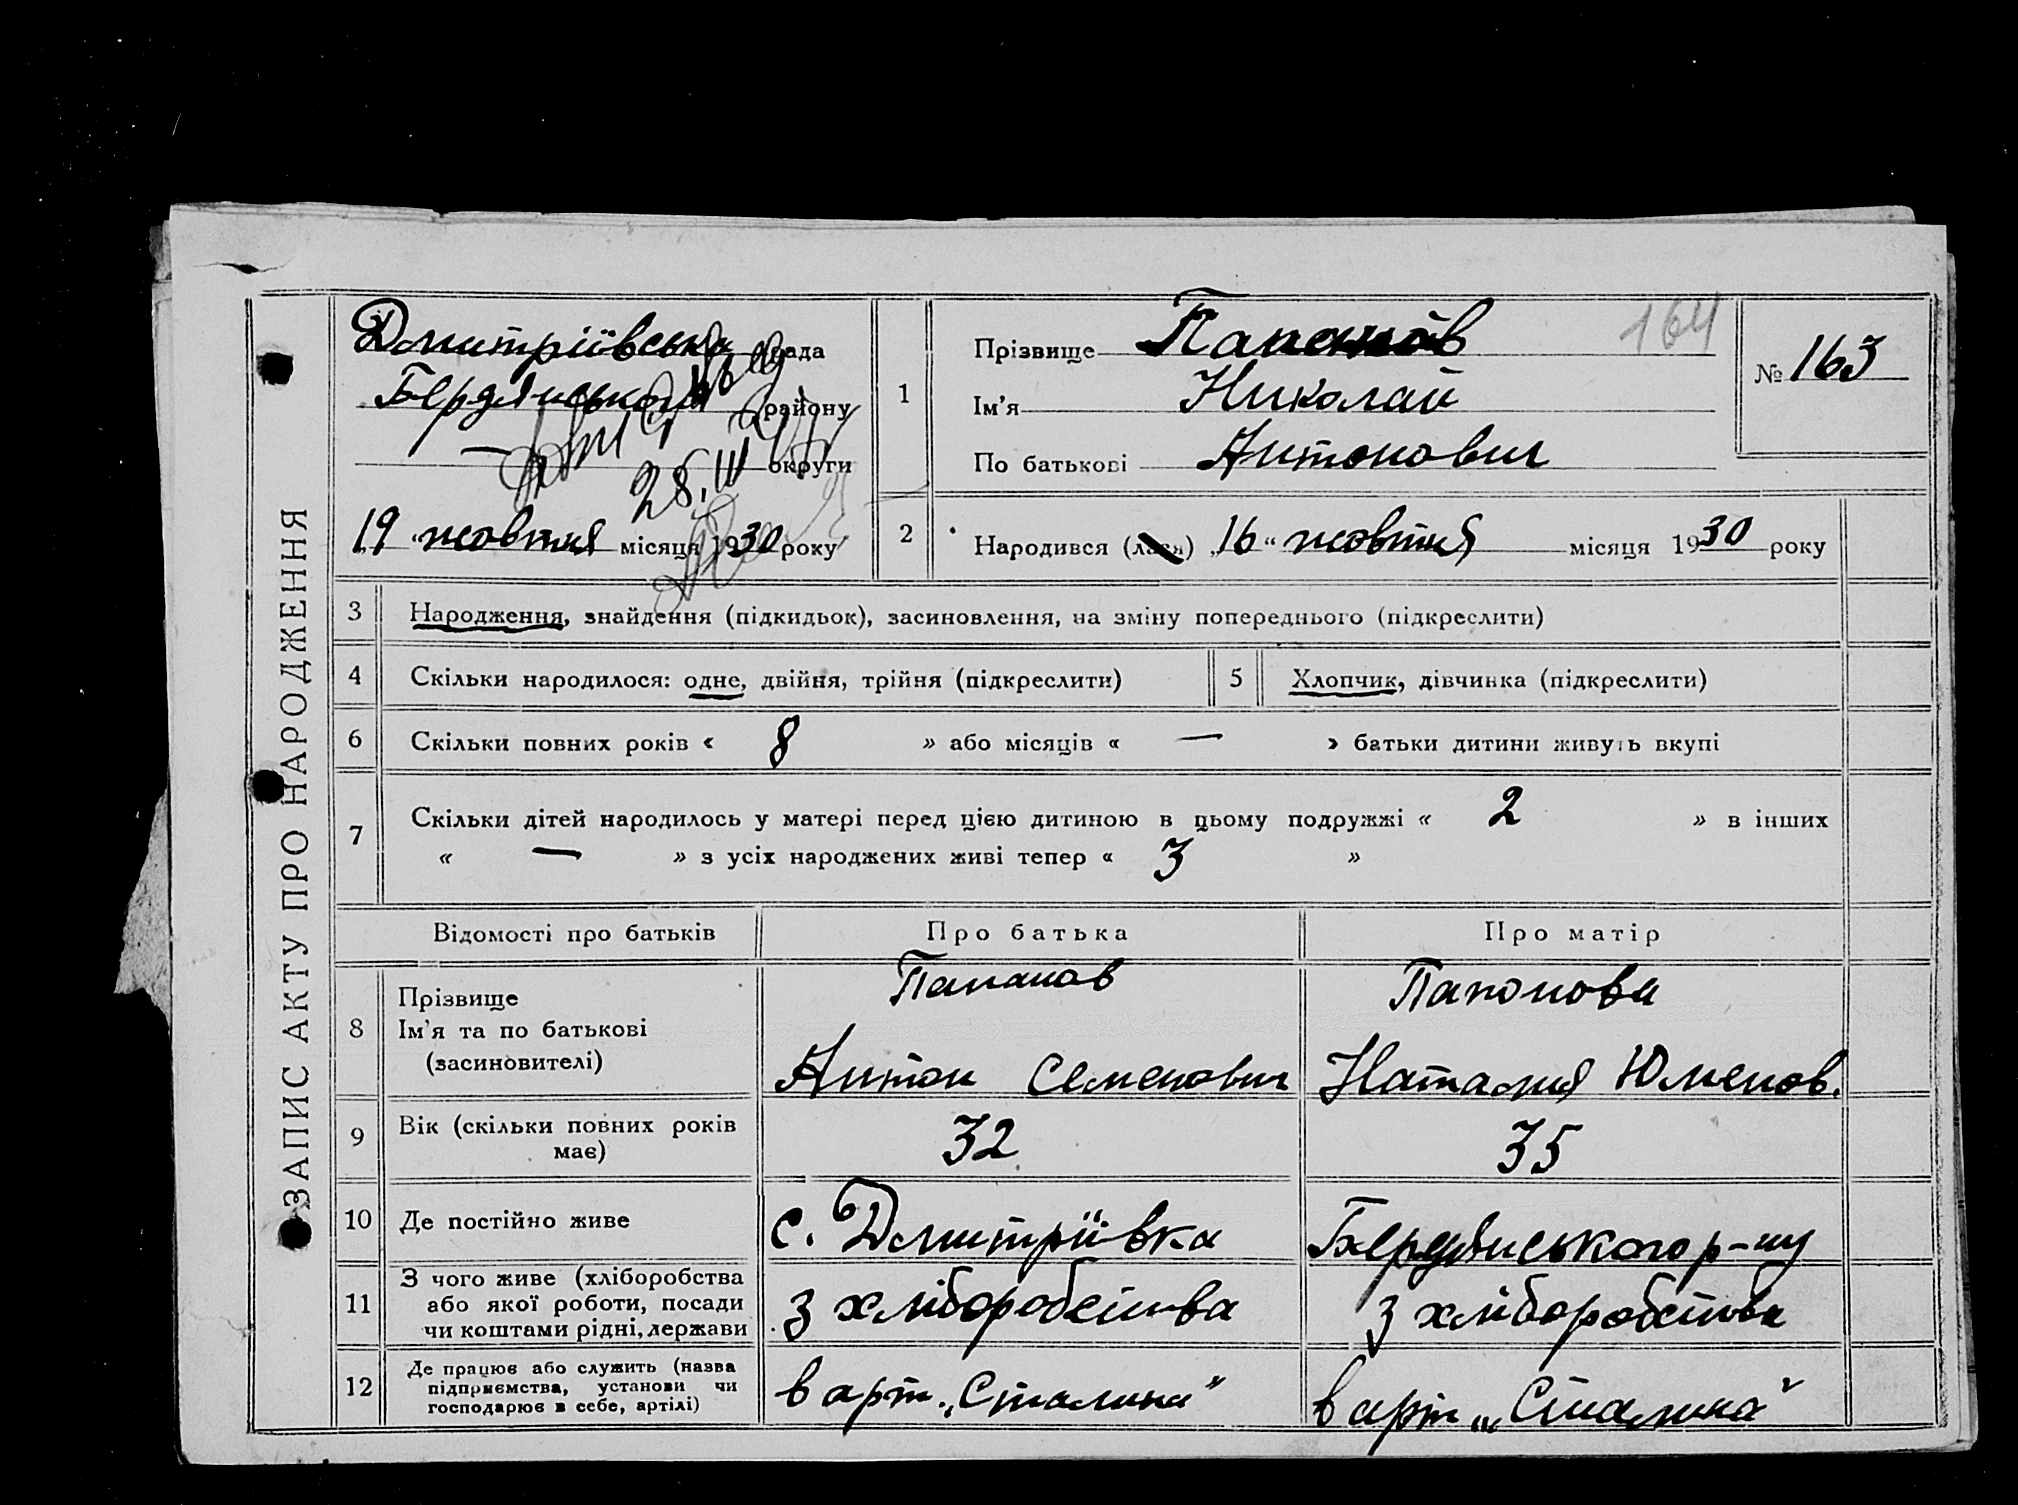 ЗАПИС АКТУ ПРО НАРОДЖЕННЯ
Дмитріївська рада
Бердянського району
— округи
28.III
„19 “ жовтня місяця 1930 року
1
Прізвище Папанов
164
№ 163
Ім'я Николай
По батькові Антонович
2
Народився (лася) „16 “ жовтня місяця 1930 року
3 Народження, знайдення (підкидьок), засиновлення, на зміну попереднього (підкреслити)
4 Скільки народилося: одне, двійня, трійня (підкреслити) 5 Хлопчик, дівчинка (підкреслити)
6 Скільки повних років « 8 » або місяців « — » батьки дитини живуть вкупі
7 Скільки дітей народилось у матері перед цією дитиною в цьому подружжі « 2 » в інших
« — » з усіх народжених живі тепер « 3 »
Відомості про батьків Про батька Про матір
8 Прізвище Папанов Папонова
Ім'я та по батькові
(засиновителі) Антон Семенович Наталия Юменов.
9 Вік (скільки повних років
має) 32 35
10 Де постійно живе с. Дмитріївка Бердянського р-ну
11 З чого живе (хліборобства
або якої роботи, посади
чи коштами рідні, держави з хліборобства з хліборобства
12 Де працює або служить (назва
підприємства, установи чи
господарює в себе, артілі) в арт. „Сталина" в арт. „Сталина"